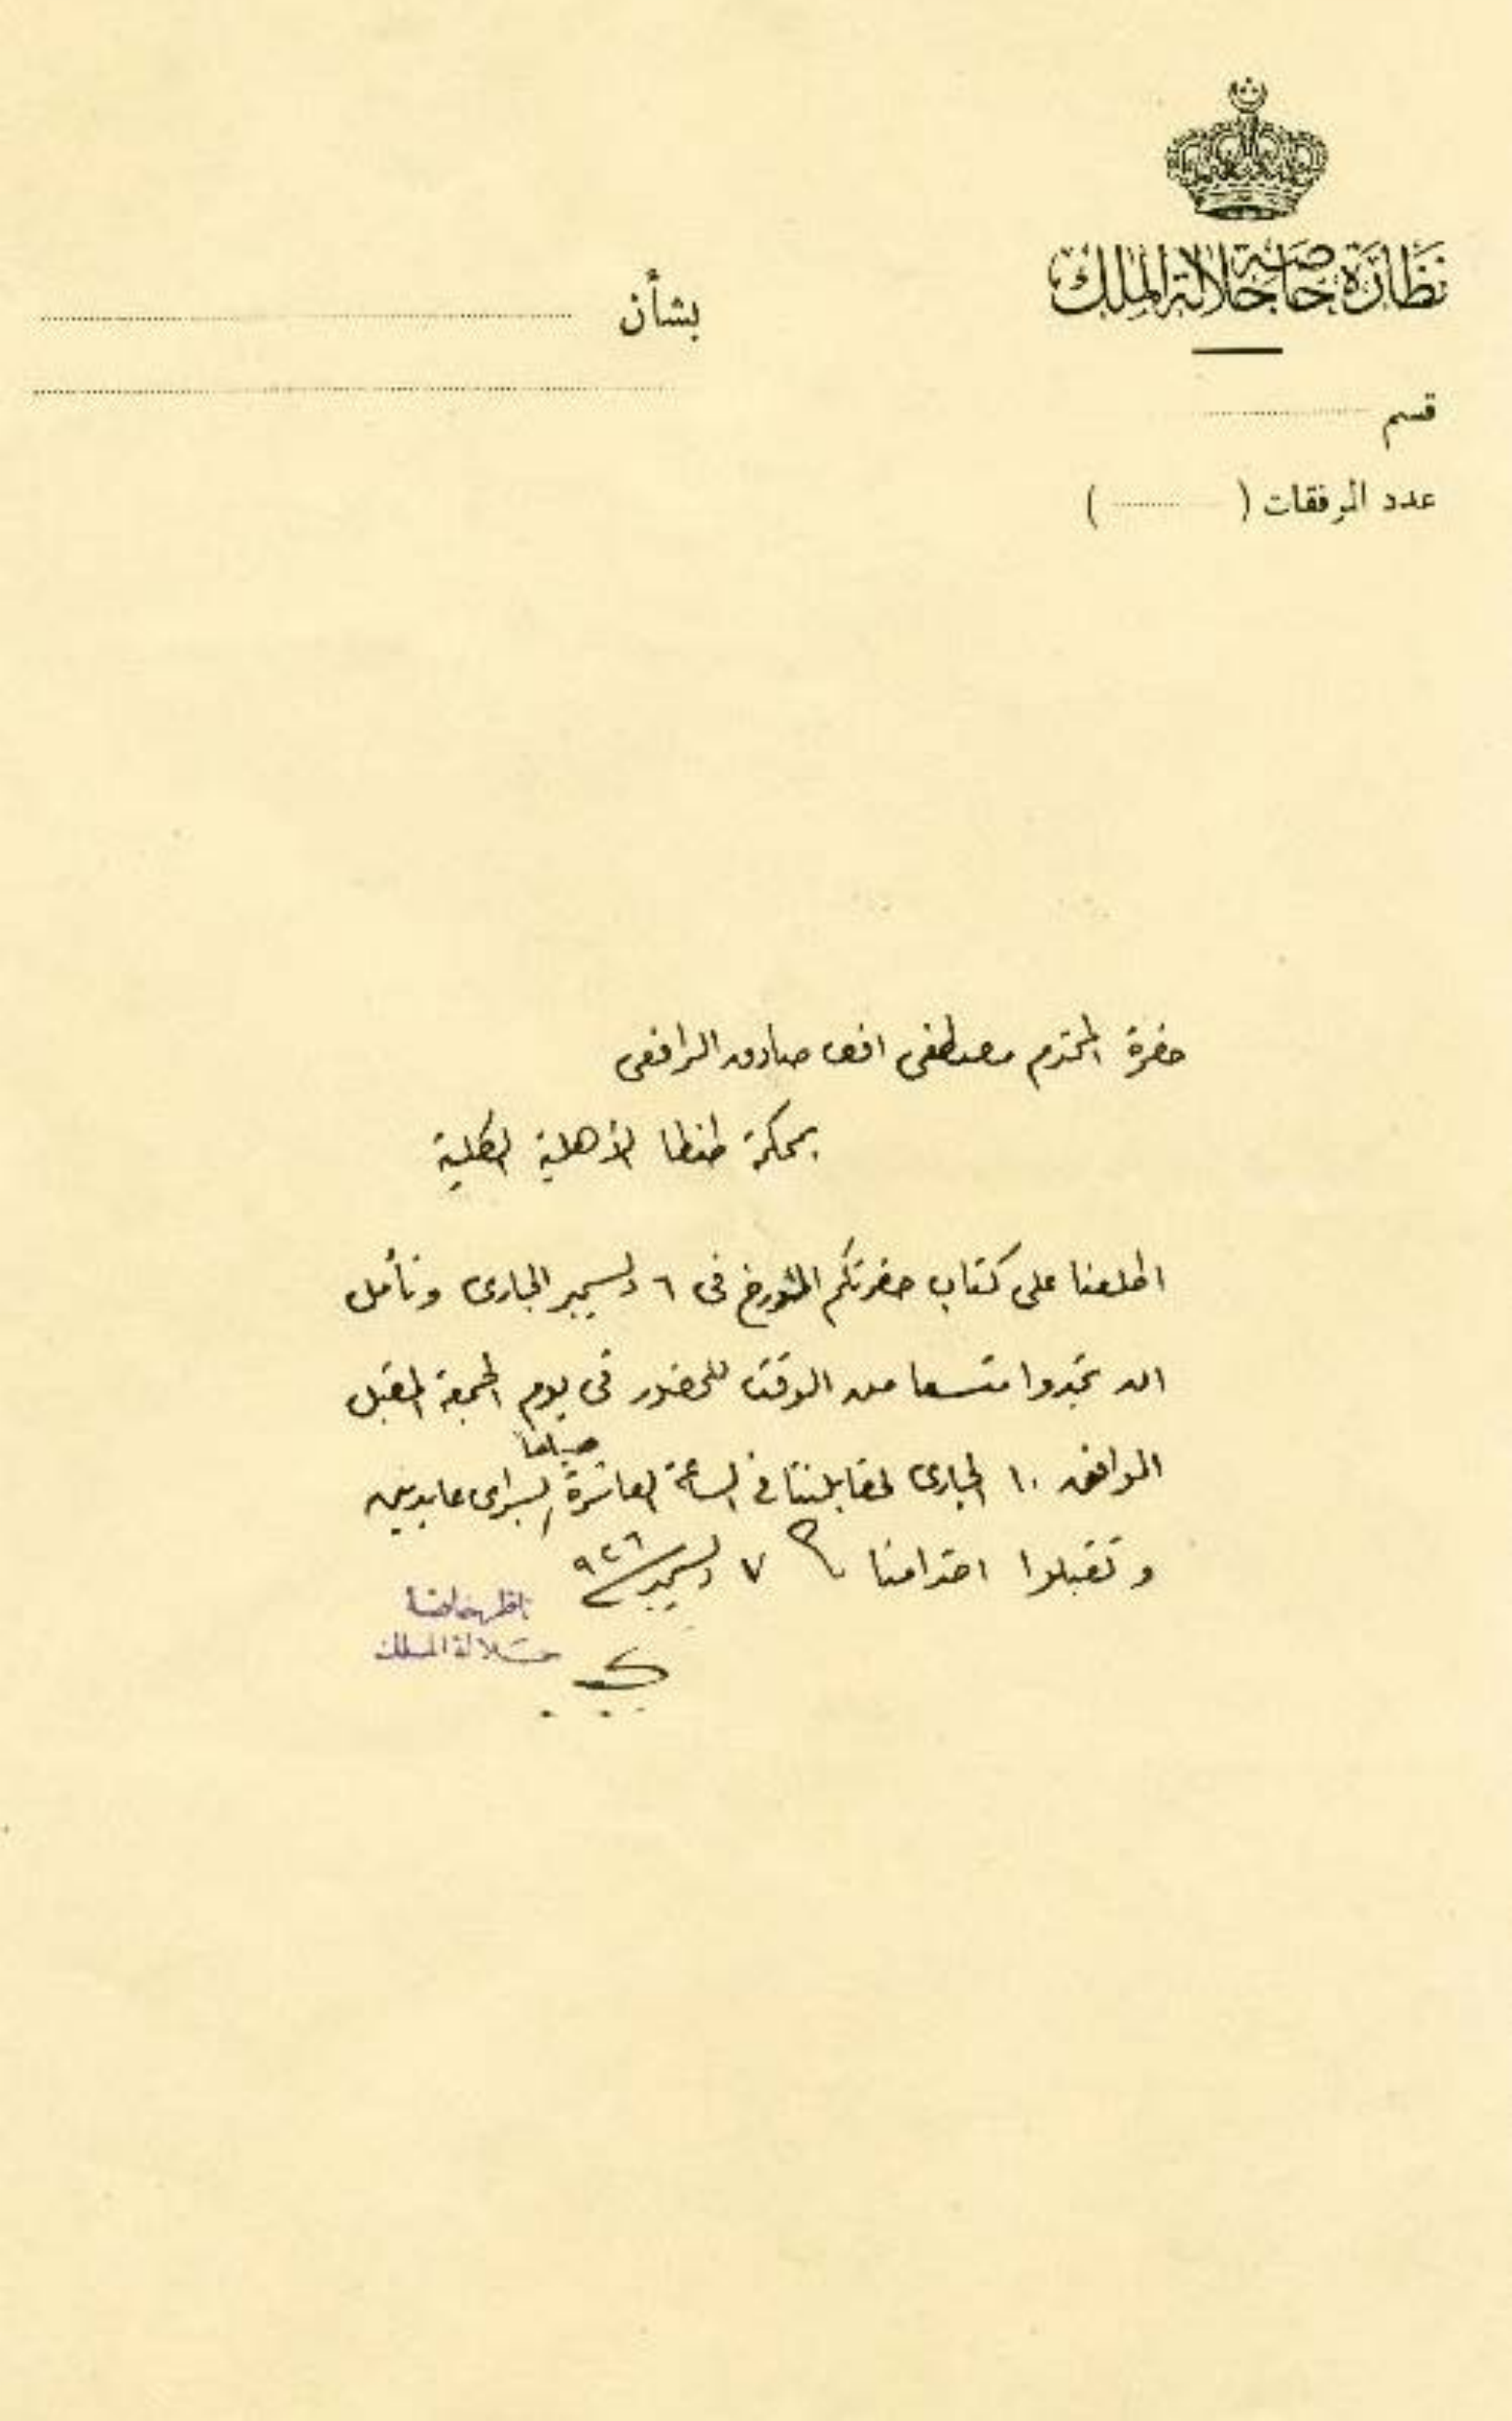 نظارة خاصة جلالة الملك
بشأن
قسم
عدد المرفقات ( )
حضرة المحترم مصطفى افندى صادق الرافعى
بمحكمة طنطا الأهلية الكلية
اطلعنا على كتاب حضرتكم المؤرخ فى ٦ ديسمبر الجارى ونأمل
ان تجدوا متسعا من الوقت للحضور فى يوم الجمعة المقبل
الموافق ١٠ الجارى لمقابلتنا فى الساعة العاشرة صباحا بسراى عابدين
وتقبلوا احترامنا ٧ ديسمبر ٩٢٦
ناظر خاصة
جلالة الملك